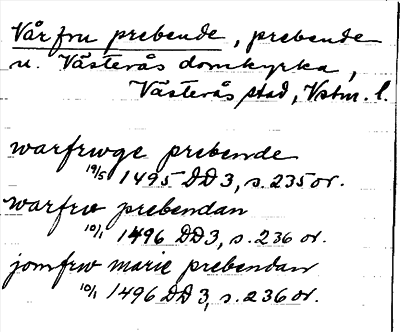 Vår fru prebende, prebende
u. Västerås domkyrka,
Västerås stad, Vstm. l.
warfrwge prebende
19/5 1495 DD3, s. 235 or.
warfrv prebendan
10/1 1496 DD3, s. 236 or.
jomfrw marie prebendan
10/1 1496 DD3, s. 236 or.